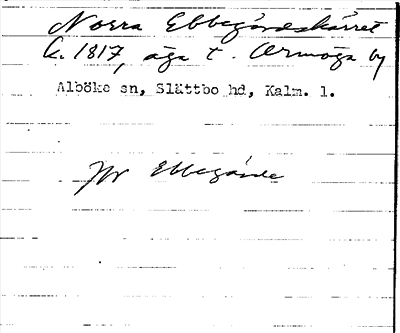 Norra Ebbegårdeskärret
k. 1817, äga t. Armöga by
Alböke sn, Slättbo hd, Kalm. l.
Jfr Ebbegårde